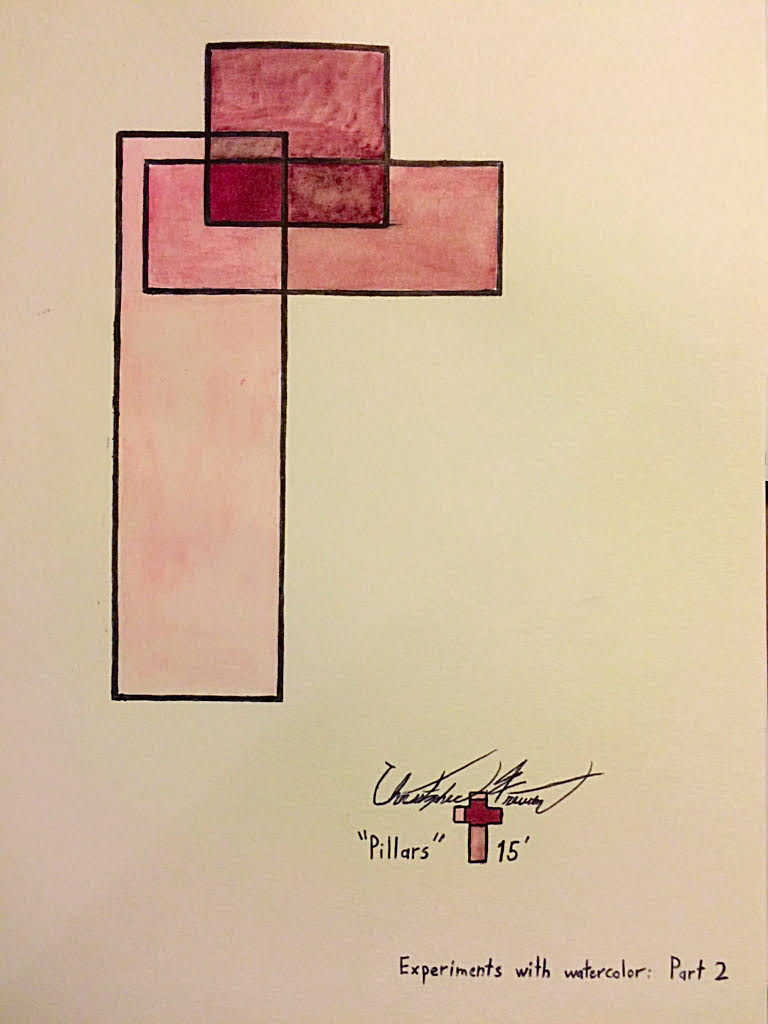 Christopher
"Pillars" 15'
Experiments with watercolor: Part 2